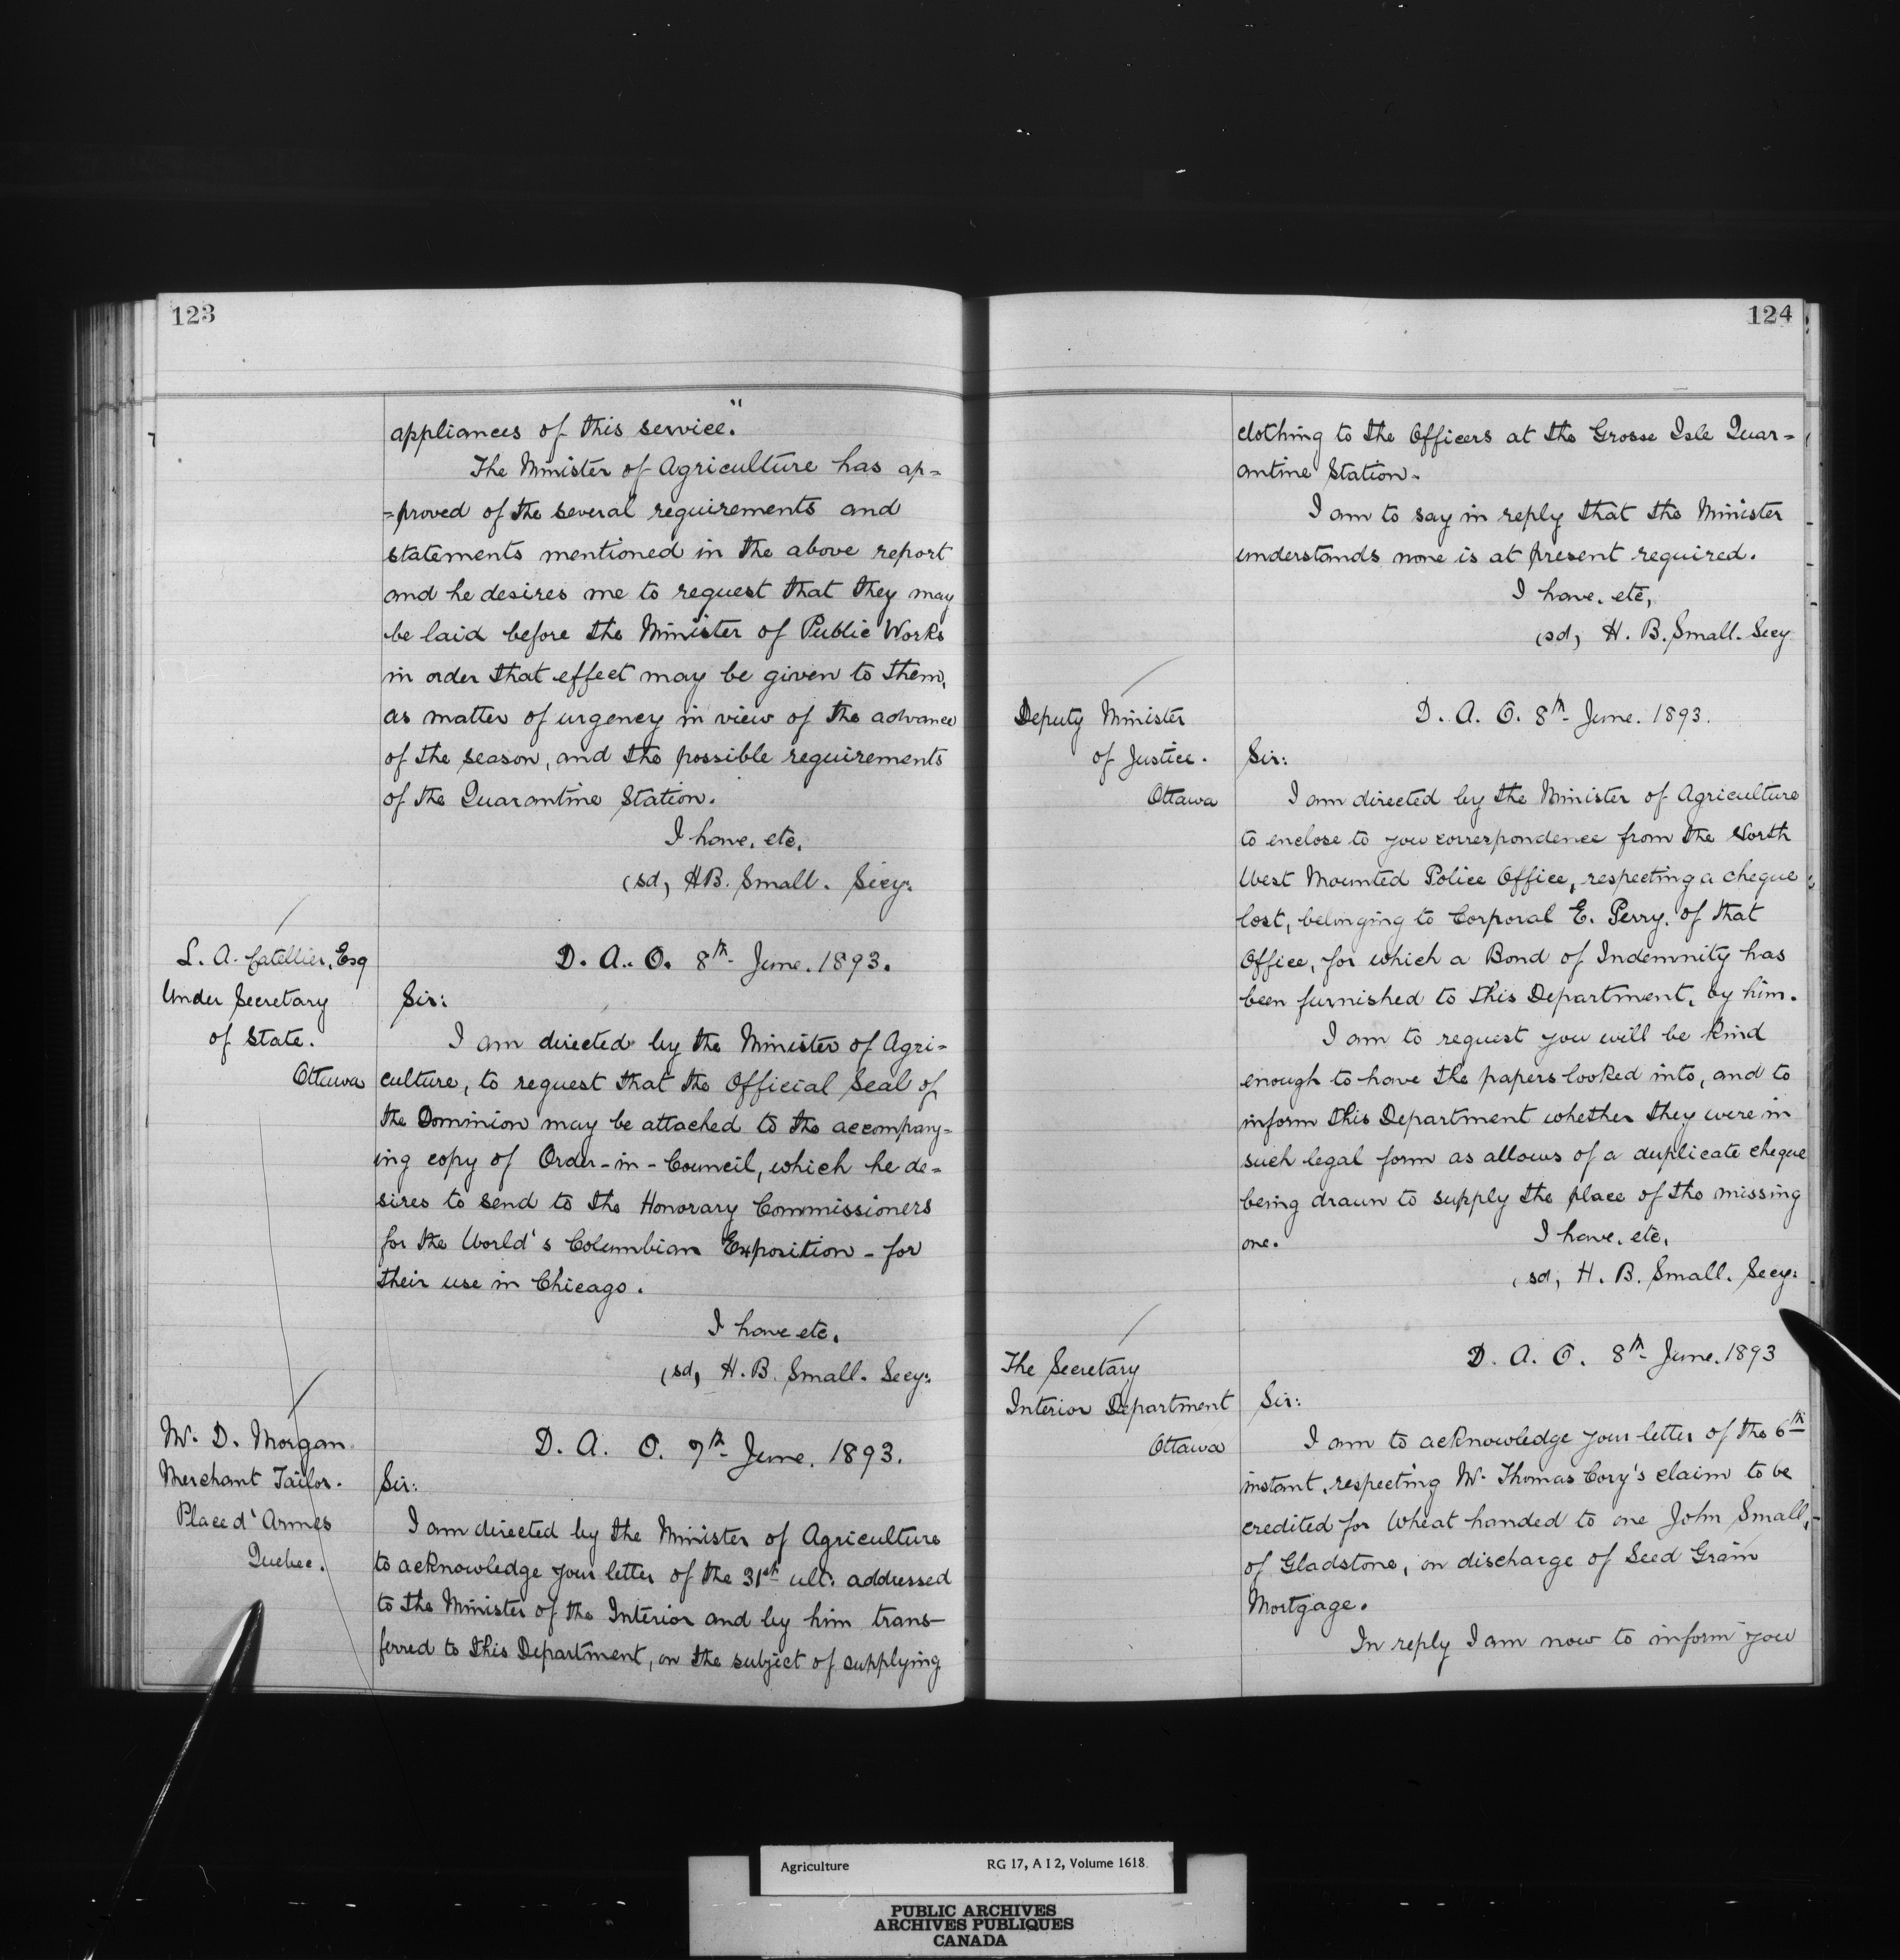 123
appliances of this service."
The Minister of Agriculture has ap=
=proved of the several requirements and
statements mentioned in the above report
and he desires me to request that they may
be laid before the Minister of Public Works
in order that effect may be given to them,
as matter of urgency in view of the advance
of the season, and the possible requirements
of the Quarantine Station.
I have, etc.
(sd, H.B. Small. Secy:
L. A. Catellier, Esq
Under Secretary
of State.
Ottawa
D. A. O. 8th June. 1893.
Sir:
I am directed by the Minister of Agri=
culture, to request that the Official Seal of
the Dominion may be attached to the accompany=
ing copy of Order-in-Council, which he de=
sires to send to the Honorary Commissioners
for the World's Columbian Exposition - for
their use in Chicago.
I have etc.
(sd, H. B. Small. Secy:
W. D. Morgan
Merchant Tailor.
Place d'Armes
Quebec.
D. A. O. 9th June. 1893.
Sir:
I am directed by the Minister of Agriculture
to acknowledge your letter of the 31st ult: addressed
to the Minister of the Interior and by him trans-
ferred to this Department, on the subject of supplying
124
clothing to the Officers at the Grosse Isle Quar=
antine Station.
I am to say in reply that the Minister
understands none is at present required.
I have, etc,
(sd, H. B. Small. Secy
Deputy Minister
of Justice.
Ottawa
D. A. O. 8th June. 1893.
Sir:
I am directed by the Minister of Agriculture
to enclose to you correspondence from the North
West Mounted Police Office, respecting a cheque
lost, belonging to Corporal E. Perry. of that
Office, for which a Bond of Indemnity has
been furnished to this Department, by him.
I am to request you will be kind
enough to have the papers looked into, and to
inform this Department whether they were in
such legal form as allows of a duplicate cheque
being drawn to supply the place of the missing
one.
I have, etc,
(sd, H. B. Small. Secy:
The Secretary
Interior Department
Ottawa
D. A. O. 8th June. 1893
Sir:
I am to acknowledge your letter of the 6th
instant, respecting Mr. Thomas Cory's claim to be
credited for Wheat handed to one John Small,
of Gladstone, on discharge of Seed Grain
Mortgage.
In reply I am now to inform you
Agriculture RG 17, A I 2, Volume 1618
PUBLIC ARCHIVES
ARCHIVES PUBLIQUES
CANADA